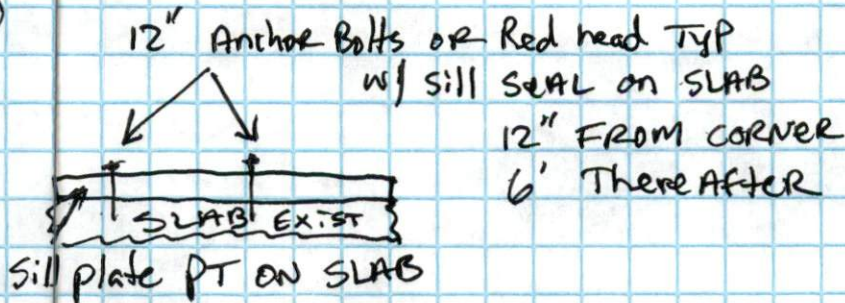 12" Anchor Bolts or Red head Typ
w/ Sill SeAL on SLAB
12" FROM CORNER
6' ThereAfter
SLAB EXIST
Sill plate PT ON SLAB